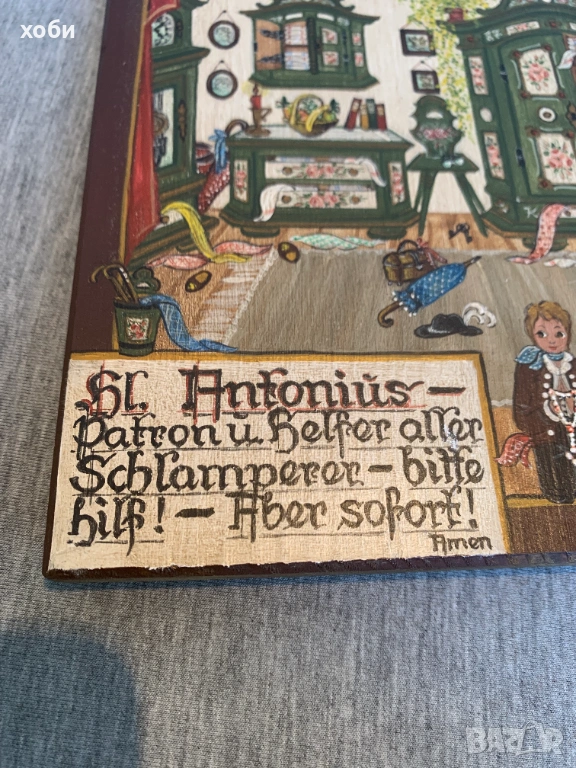 хоби
Hl. Antonius –
Patron u. Helfer aller
Schlamperer – bitte
hilf! – Aber sofort!
Amen
BAZAR